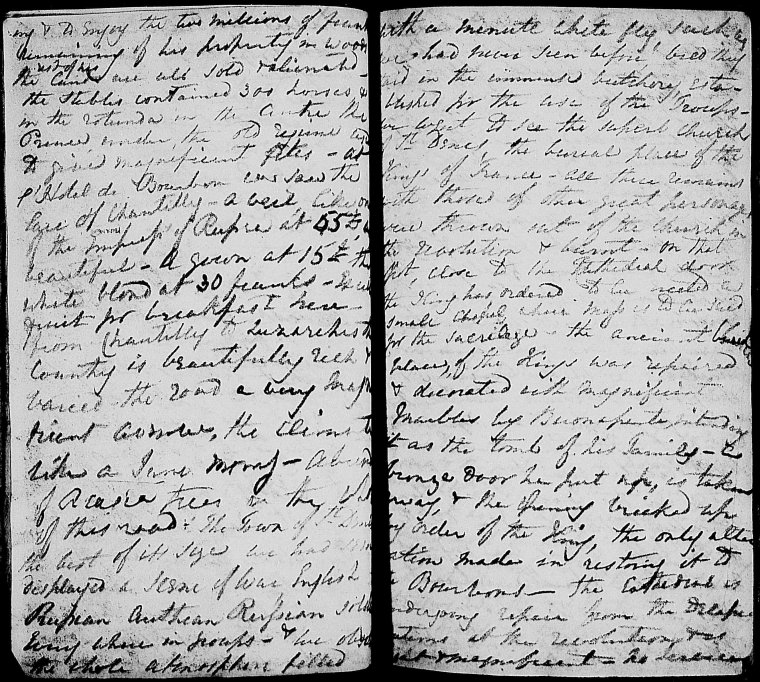 ing & to Enjoy the two millions of frank
remaining of his property in Wood
rest of his
the Lands are all sold & alienated -
the Stables contained 300 horses &
in the rotunda in the Centre the
Princes under, the old regime
to give magnificent fetes - at
l'Hotel de Bourbon we saw the
lace of Chantilly - a veil like one
of the Empress of Russia at 55
beautiful - a gown at 15 the
white blond at 30 franks -
for breakfast here -
from Chantilly to Luzarches the
Country is beautifully rich &
varied the road a very magni
ficent avenue, the climate
like a June morng -
of Acacia trees in the
of this road - The Town of St Denis
the best of its size we had seen
displayed a Scene of War English
Russian Austrian Prussian sold
Every where in groups - &
the whole atmosphere filled
with a minute white fly such as
we had never seen before, bred they
said in the immense butchery, esta-
blished for the use of the Troops -
we went to see the superb Church
of St Denis, the burial place of the
Kings of France - all their remains
with those of other great personages
were thrown out of the church in
the Revolution & burnt - on that
spot, close to the Cathedral door
the King has ordered to be erected a
small chapel where mass is to be said
for the sacrilege - the ancient burial
place, of the Kings was repaired
& decorated with magnificent
Marbles by Buonaparte, intending
it as the tomb of his family -
bronze Door he put up, is taken
away, & the opening bricked up
by order of the King, the only alter
ation made in restoring it to
the Bourbons - the Cathedral is
undergoing repair from the
at the revolution, & is
& magnificent -